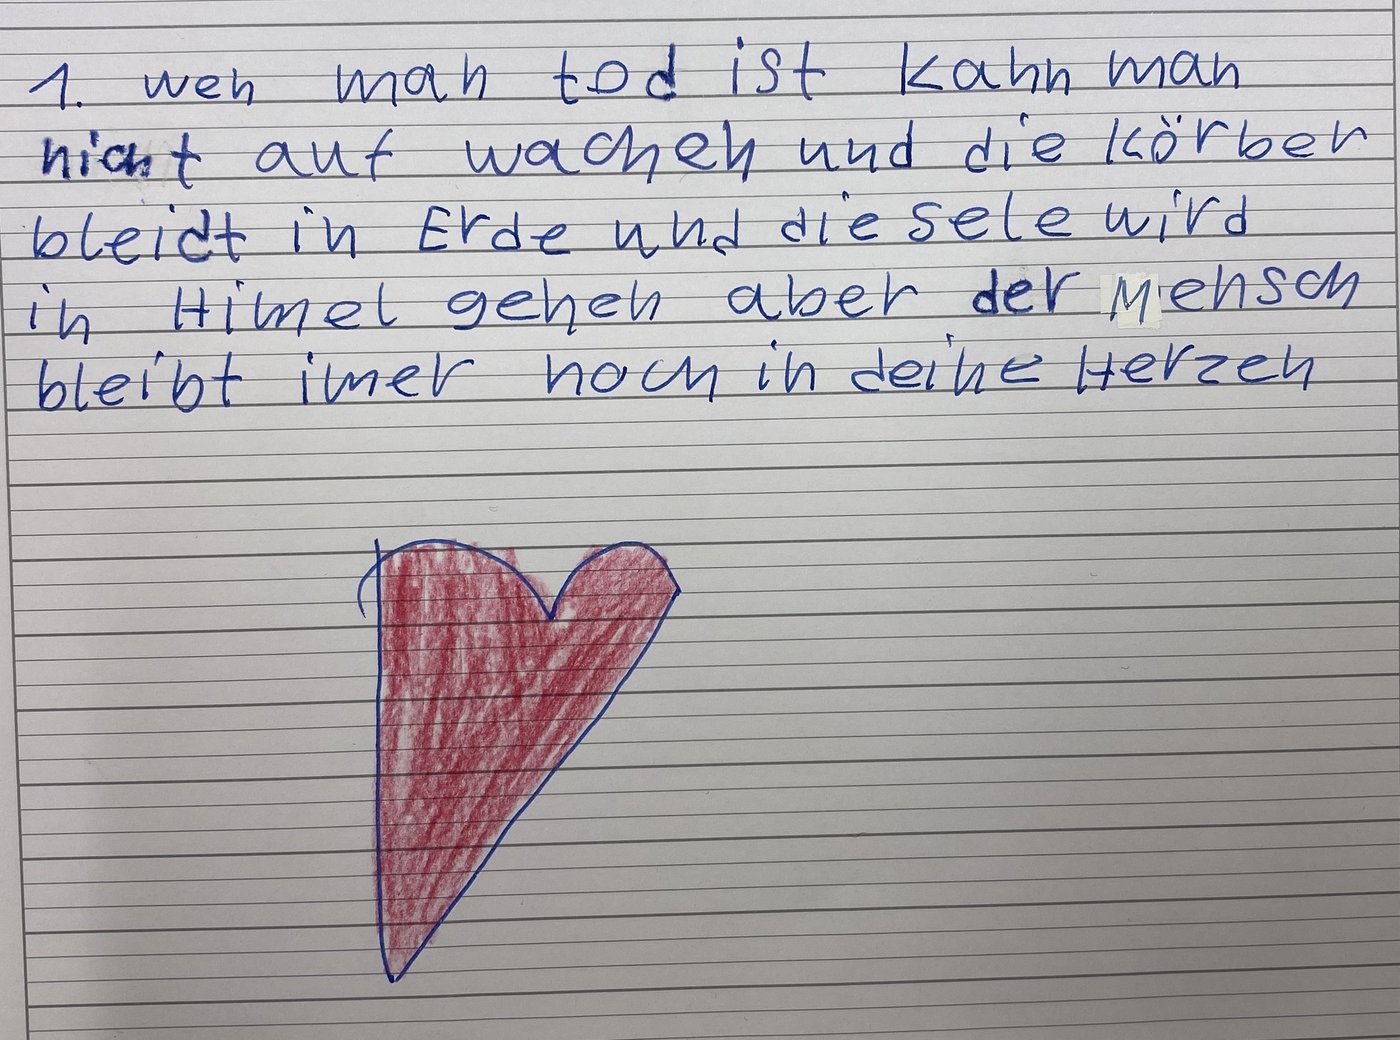 1. wen man tod ist kann man
nicht auf wachen und die körber
bleidt in Erde und die sele wird
in Himel gehen aber der Mensch
bleibt imer noch in deine Herzen